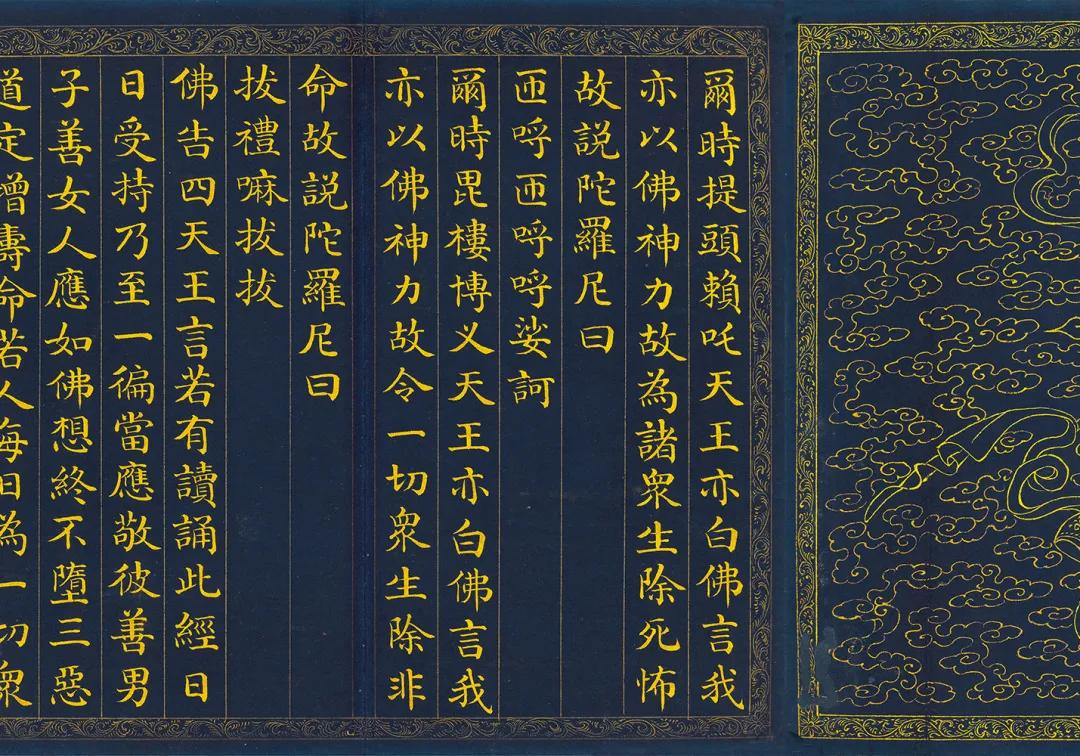 爾時提頭賴吒天王亦白佛言我
亦以佛神力故為諸衆生除死怖
故説陀羅尼曰
匝呼匝呼呼娑訶
爾時毘樓博义天王亦白佛言我
亦以佛神力故令一切衆生除非
命故説陀羅尼曰
拔禮嘛拔拔
佛告四天王言若有讀誦此經日
日受持乃至一徧當應敬彼善男
子善女人應如佛想終不墮三惡
道定增壽命若人每日為一切衆